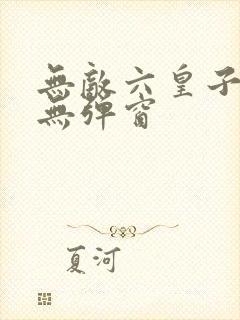 無敵六皇子
無彈窗
夏河